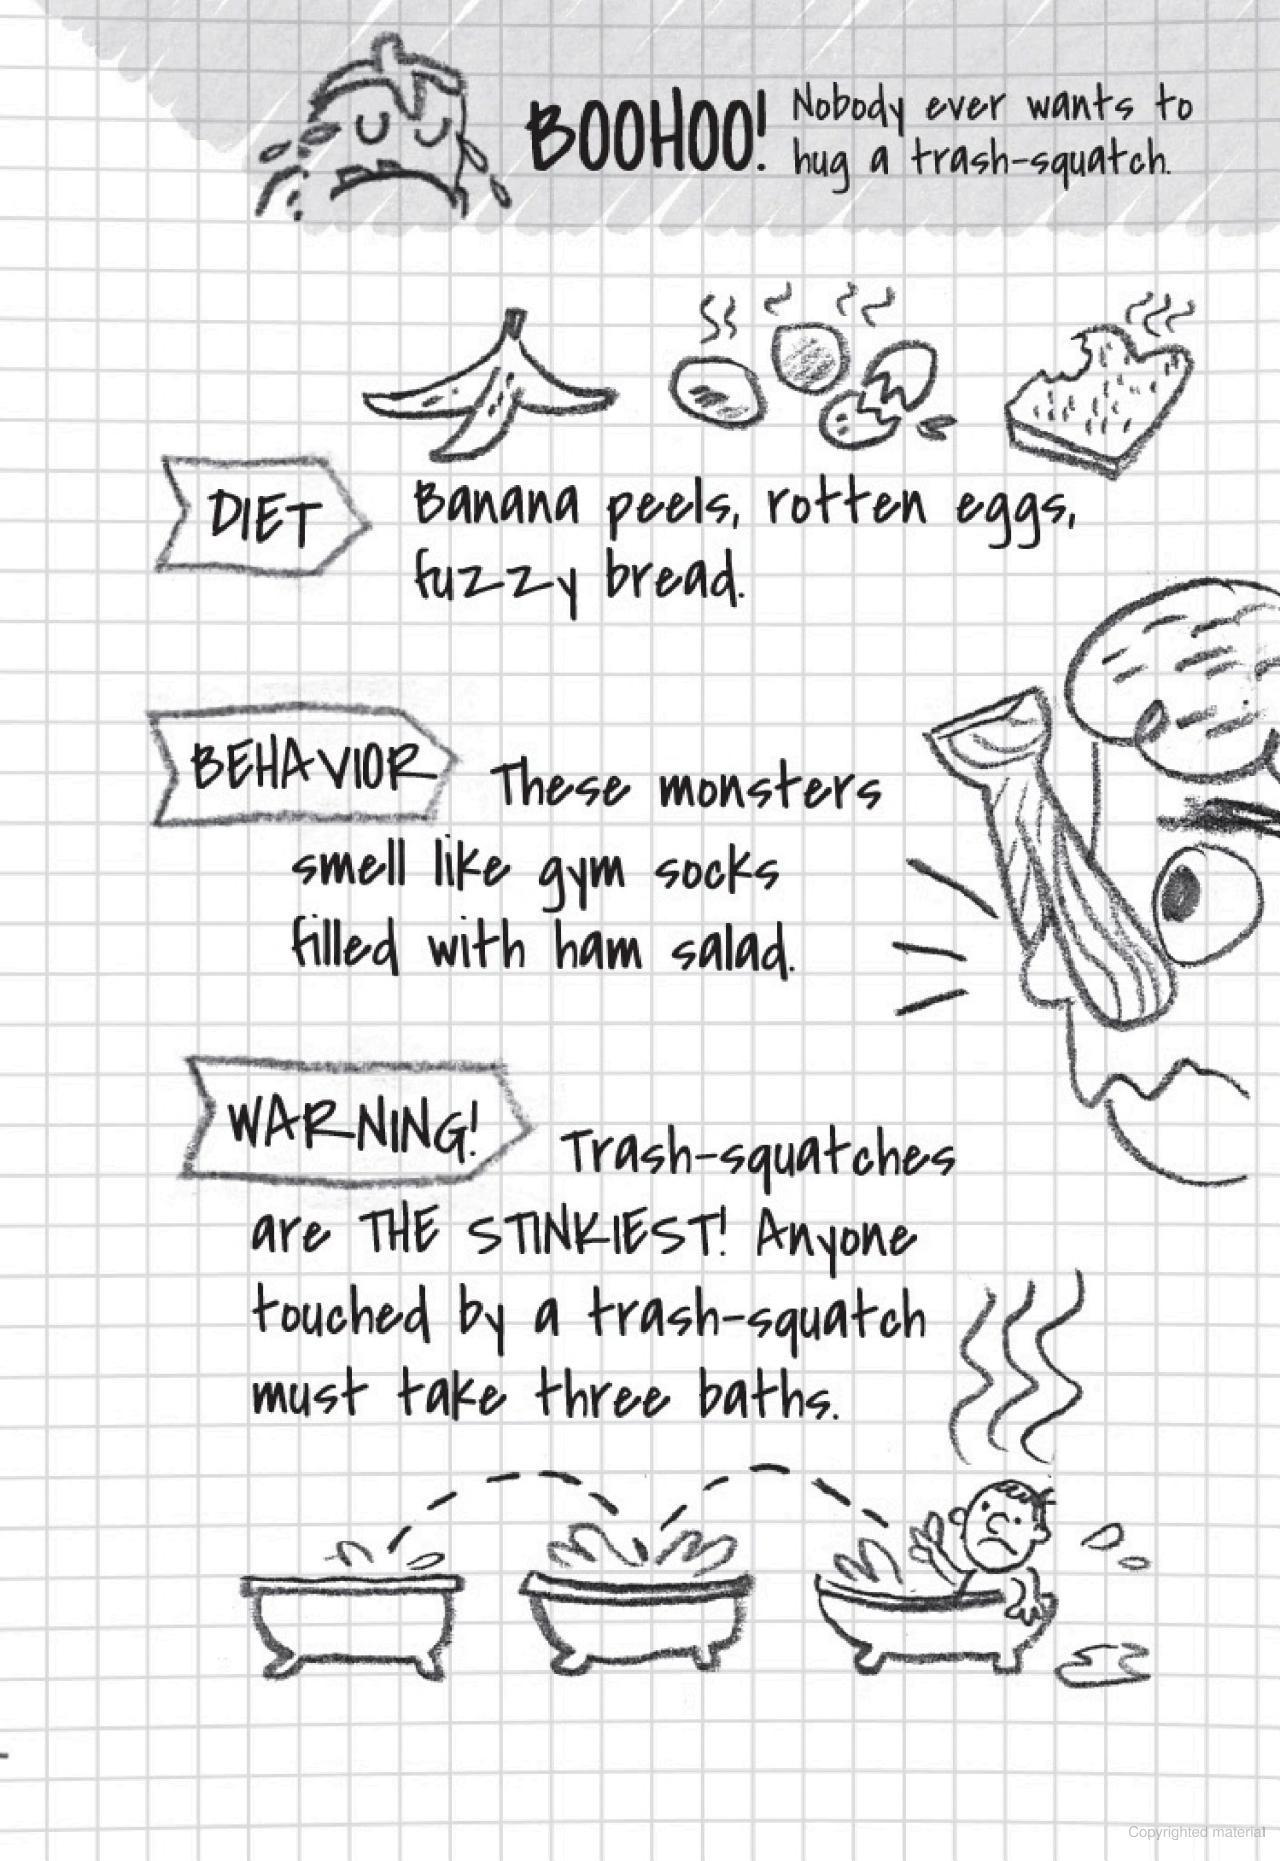 BOOHOO! Nobody ever wants to
hug a trash-squatch.
DIET Banana peels, rotten eggs,
fuzzy bread.
BEHAVIOR These monsters
smell like gym socks
filled with ham salad.
WARNING! Trash-squatches
are THE STINKIEST! Anyone
touched by a trash-squatch
must take three baths.
Copyrighted material